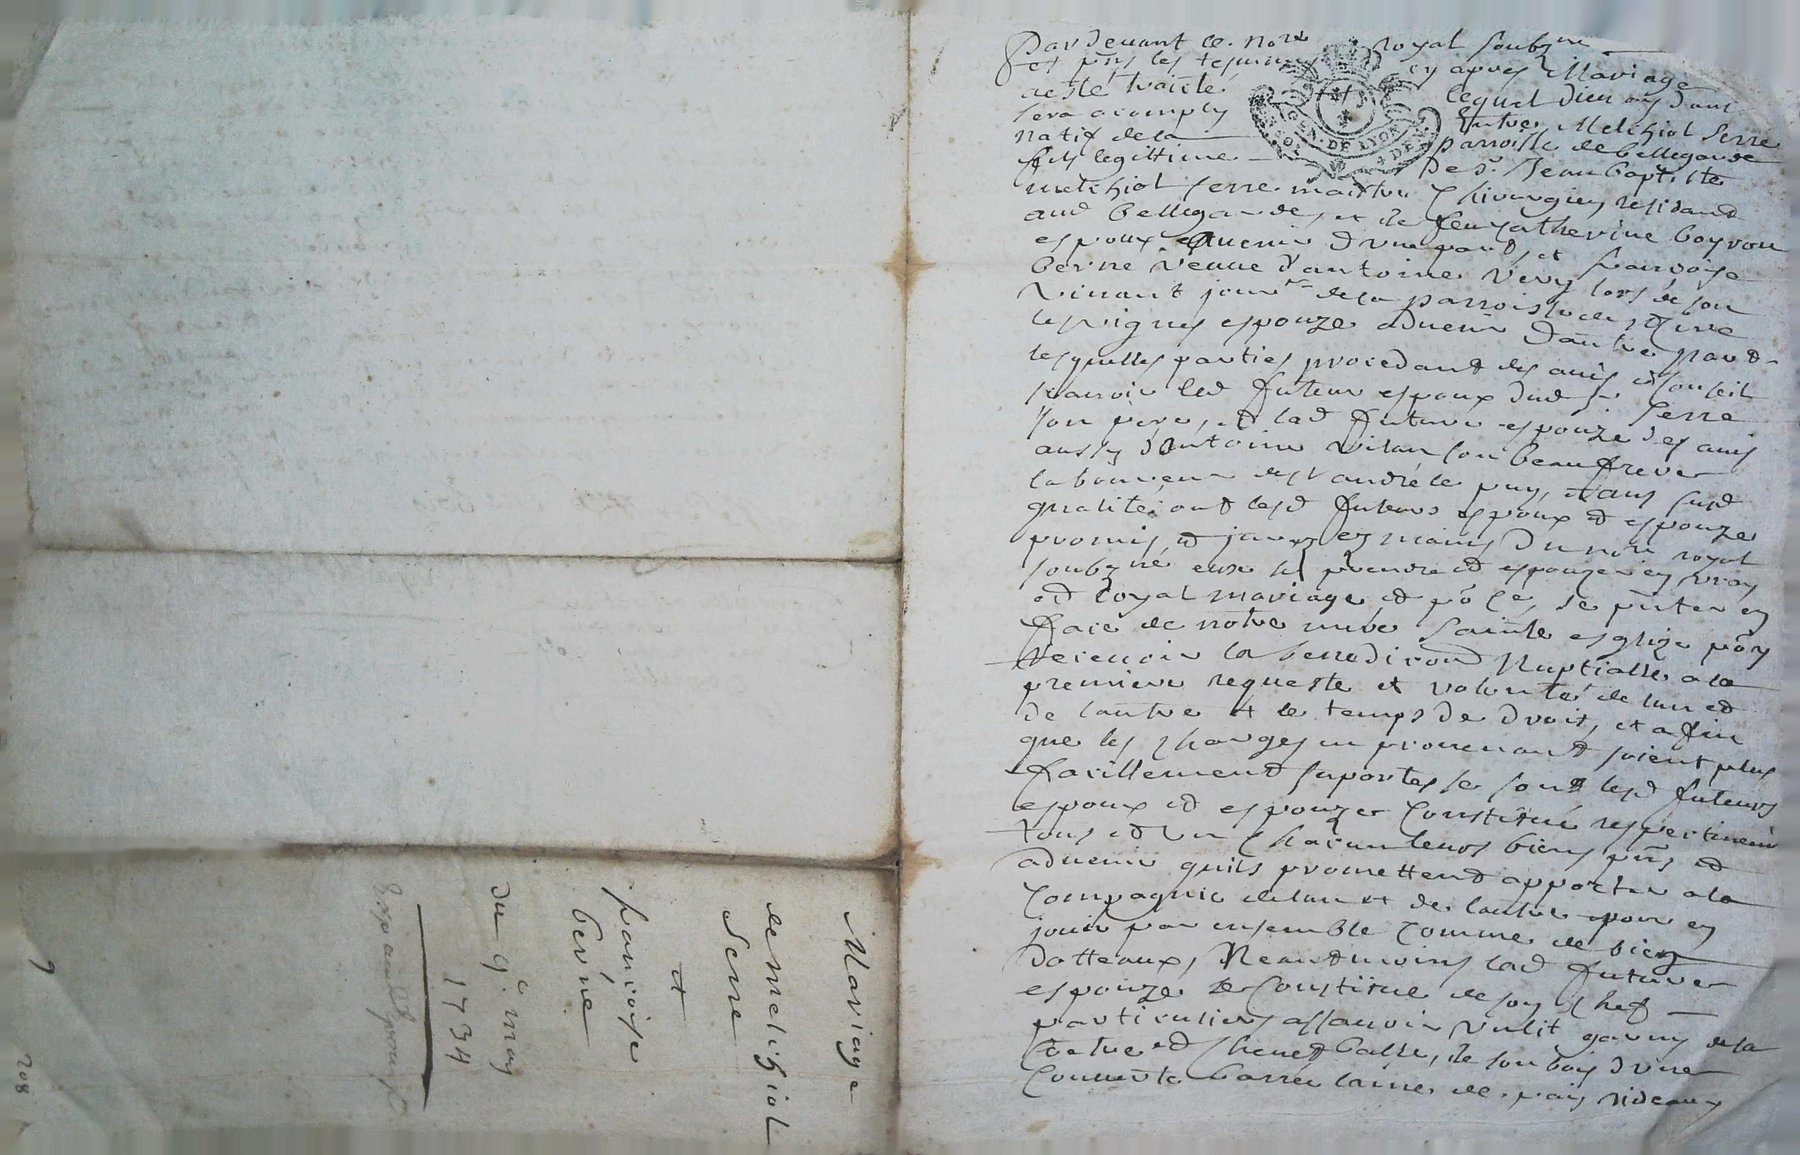 Mariage
de melchiol
Serre
et
francoise
berne
du 9e. may
1734
9
208
Par devant le nore royal soubzne
et pñs les tesmoins cy apres Mariage
a esté traicté lequel dieu aydant
sera acomply Entre Melchiol Serre
natif de la parroisse de bellegarde
fils legittime De Sr. Jean baptiste
melchiol serre maitre Chirurgien residant
aud bellegarde, et de feu Catherine boyron
espoux advenir d'une part, et francoise
berne veuve d'antoine very lors de son
vivant jour.r de la parroisse de st Cire
les vignes espouze advenir d'autre part
lesquelles parties procedant des avis et conseil
scavoir led futeur espoux dud sr Serre
son pere, et lad future espouze des avis
aussy d'Antoine vilan son beaufrere
laboureur de st andré le puy, et aux susd
qualités ont lesd futeurs espoux et espouze
promis et juré es mains du nore royal
soubzné eux se prendre et espouzer en vray
et loyal mariage et po ce, se pñter en
face de nôtre mere Sainte esglize pour y
recevoir la benedicon Nuptialle a la
premiere requeste et volonté de lun et
de lautre et le temps de droit, et affin
que les charges en provenant soient plus
facillement suportés se sont lesd futeurs
espoux et espouze Constitué respectivement
tous et un chacun leurs biens pñs et
advenir quils promettent apporter a la
Compagnie de lun et de lautre pour en
jouir par ensemble Comme de biens
dotteaux, Neantmoins lad future
espouze se Constitue de son chef
particuliers assavoir un lit garny de sa
Coetre et Chevet balle, de son bois d'une
Couverte barré laine de pais rideaux